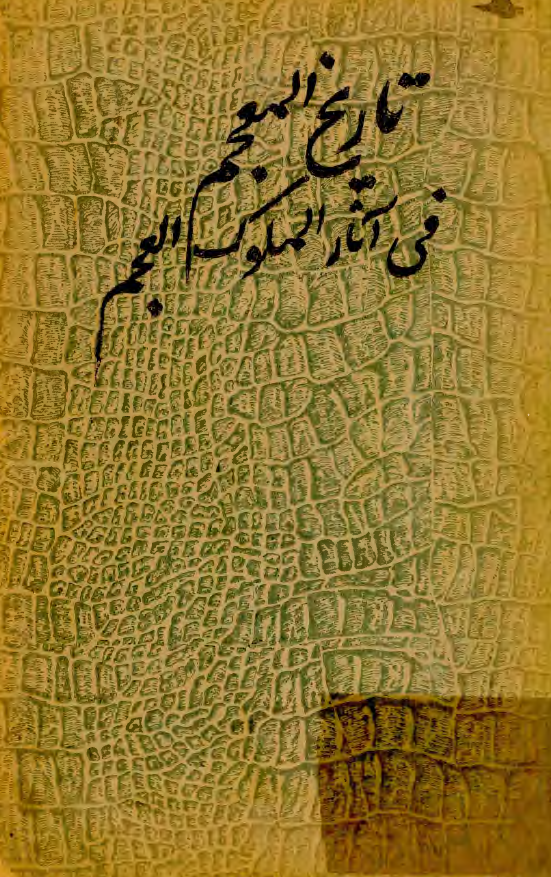 تاریخ المعجم
فی آثار الملوک العجم